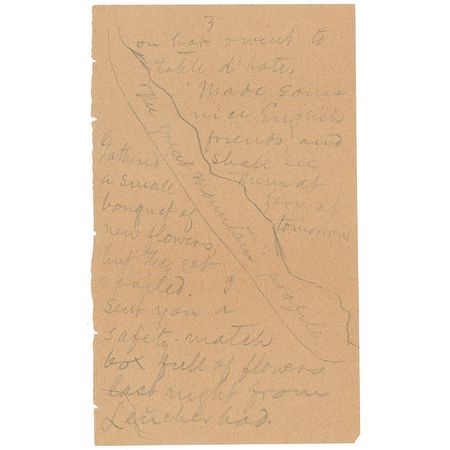 3
on hat & went to
table d'hote.
Made some
nice English
friends and
shall see
them at
Zermat
tomorrow
The great mountain
Gathered
a small
bouquet of
new flowers,
but they got
spoiled. I
sent you a
safety-match
box full of flowers
last night from
Leucherbad.